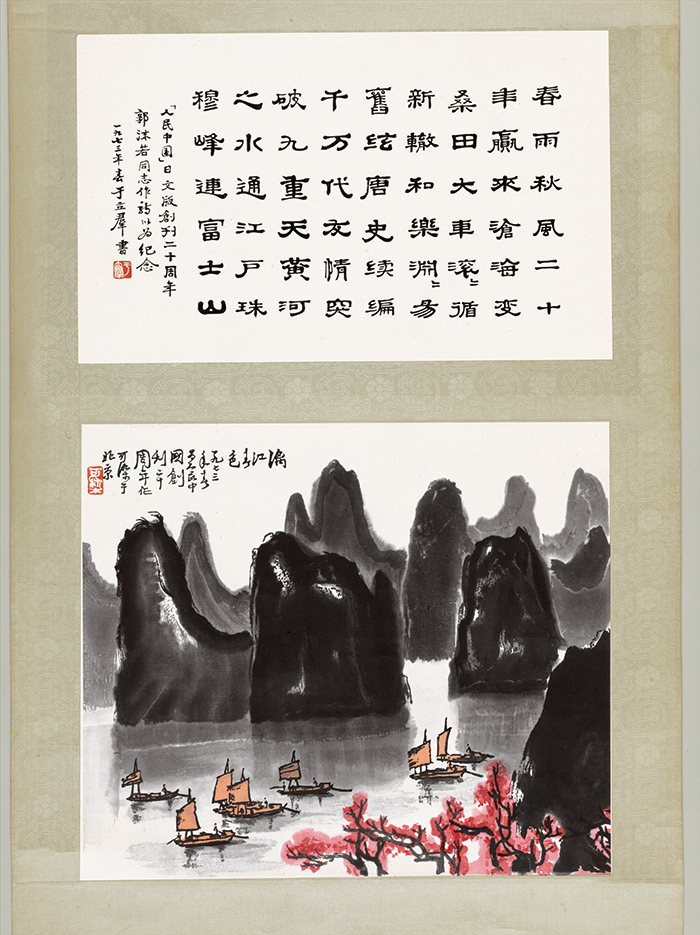 春雨秋風二十
年贏來滄海变
桑田大車滚〻循
新轍和樂淵〻易
舊絃唐史续編
千万代友情突
破九重天黄河
之水通江户珠
穆峰連富士山
「人民中国」日文版創刊二十周年
郭沫若同志作詩以为纪念
一九七三年春于立羣書
漓江春色
一九七三
年春
为人民中
國創
刊二十
周年作
可染于
北京